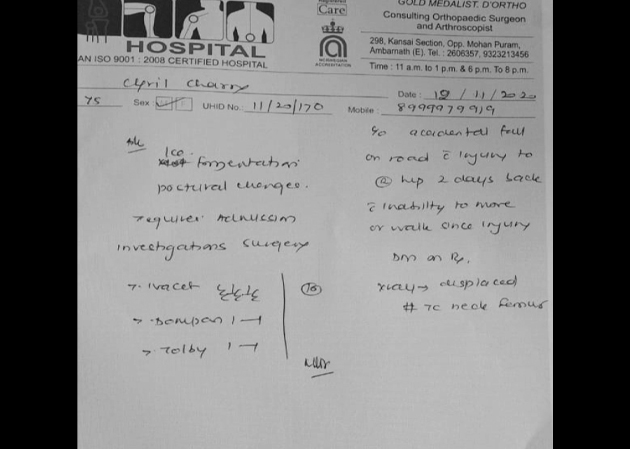 GOLD MEDALIST. D'ORTHO
Consulting Orthopaedic Surgeon
and Arthroscopist
Care
ACCREDITATION
HOSPITAL
AN ISO 9001 : 2008 CERTIFIED HOSPITAL
298, Kansai Section, Opp. Mohan Puram,
Ambarnath (E). Tel. : 2606357, 9323213456
Time : 11 a.m. to 1 p.m. & 6 p.m. To 8 p.m.
Cyril Charry
Date : 12 / 11 / 2020
75 Sex : UHID No. 11/20/170 Mobile : 8999979919
Adv
Ice fomentation
postural changes.
requires Admission
investigations surgery
→ Ivacet
→ Dompan 1 —1
→ Tolby 1 —1
c/o accidental fall
on road c̄ injury to
hip 2 days back
c̄ inability to move
or walk since injury
DM on Rx.
xray → displaced
# neck femur